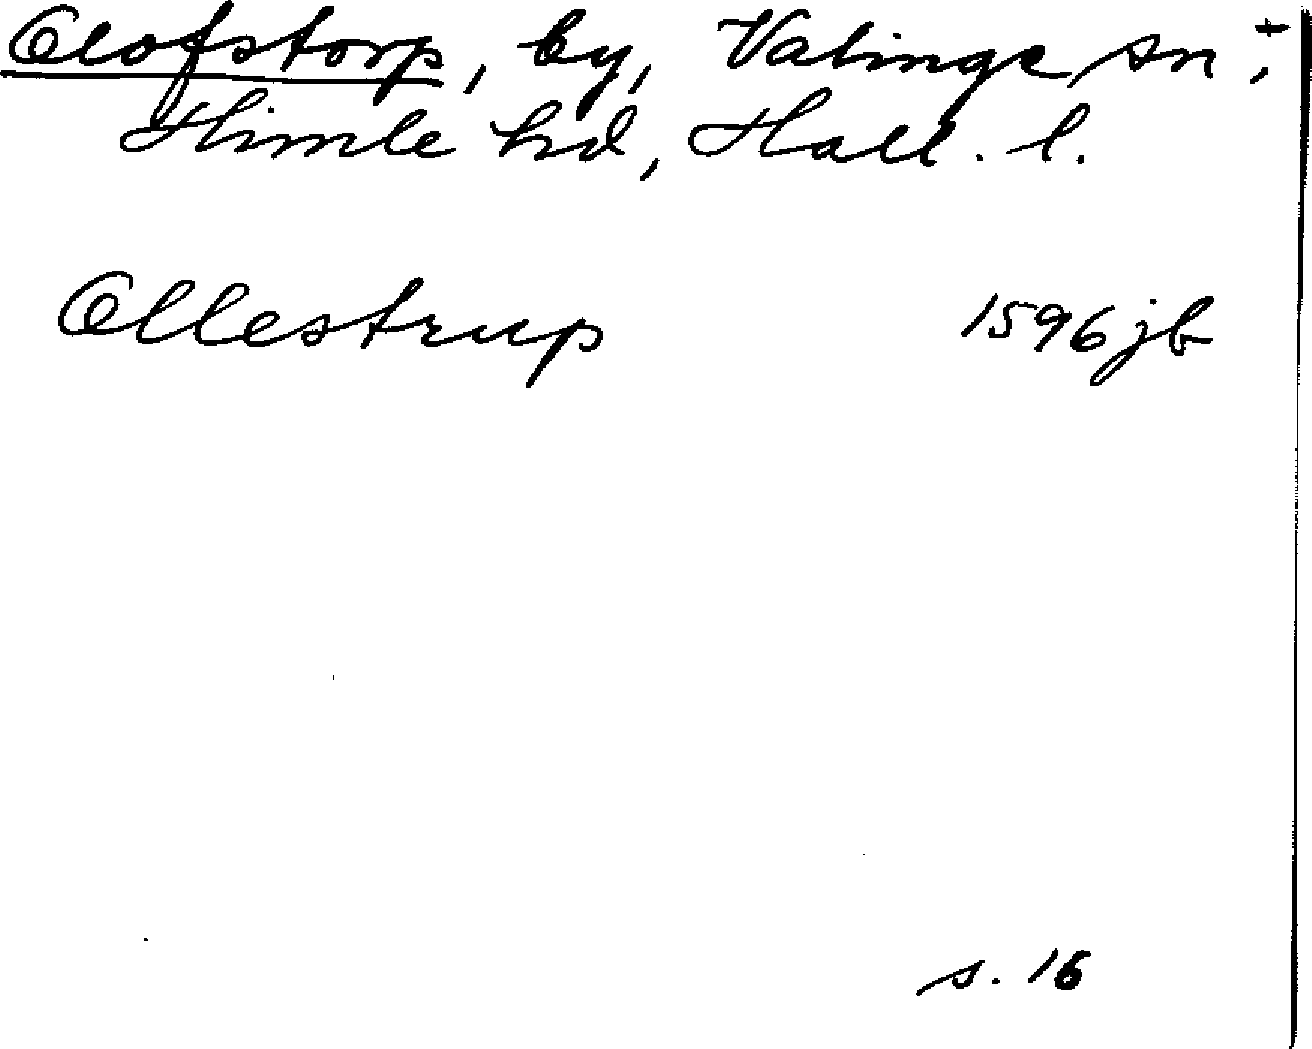 Olofstorp, by, Valinge sn, +
Himle hd, Hall. l.
Ollestrup 1596 jb
s. 16